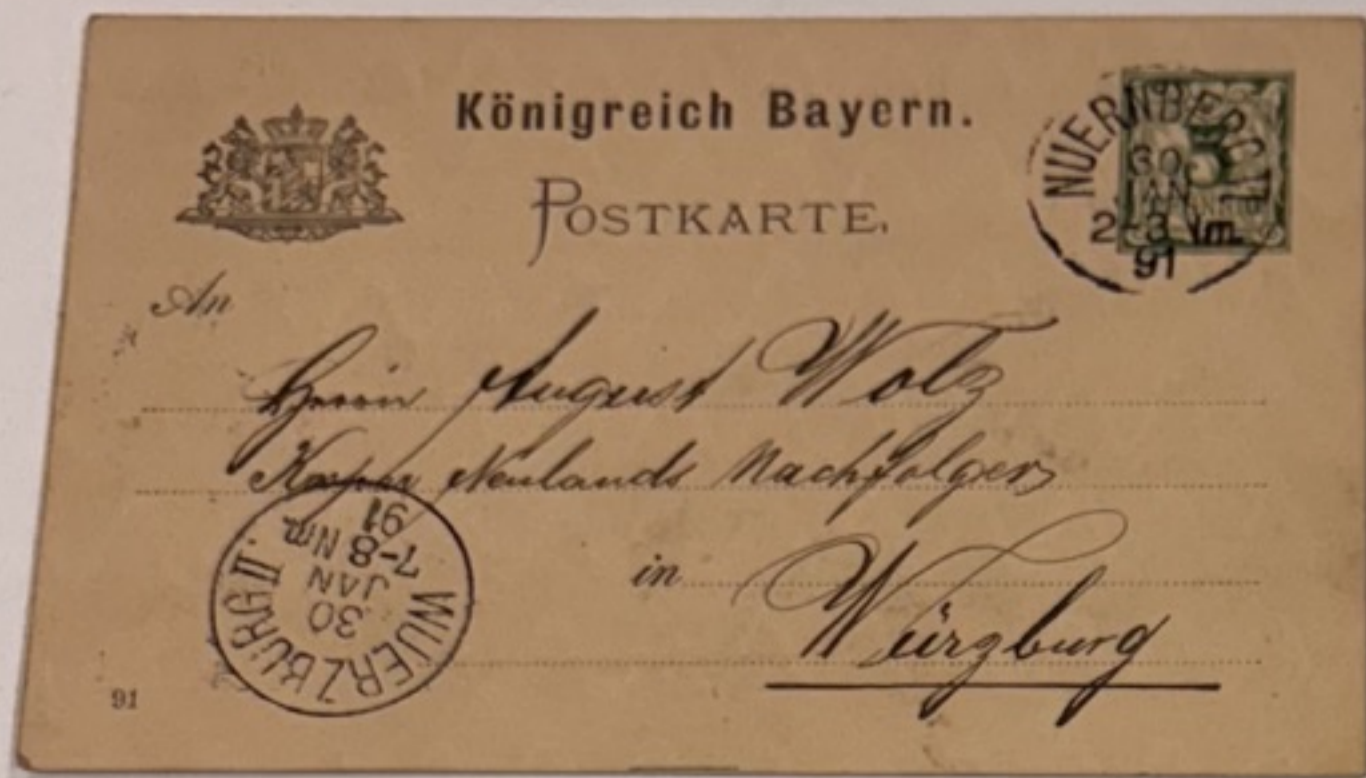 Königreich Bayern.
POSTKARTE.
NUERNBERG II
30
JAN
2-3 Nm.
91
3
An
Herrn August Wolz
Neulands Nachfolger
in Würzburg
WUERZBURG II.
30
JAN
7-8 Nm.
91
91